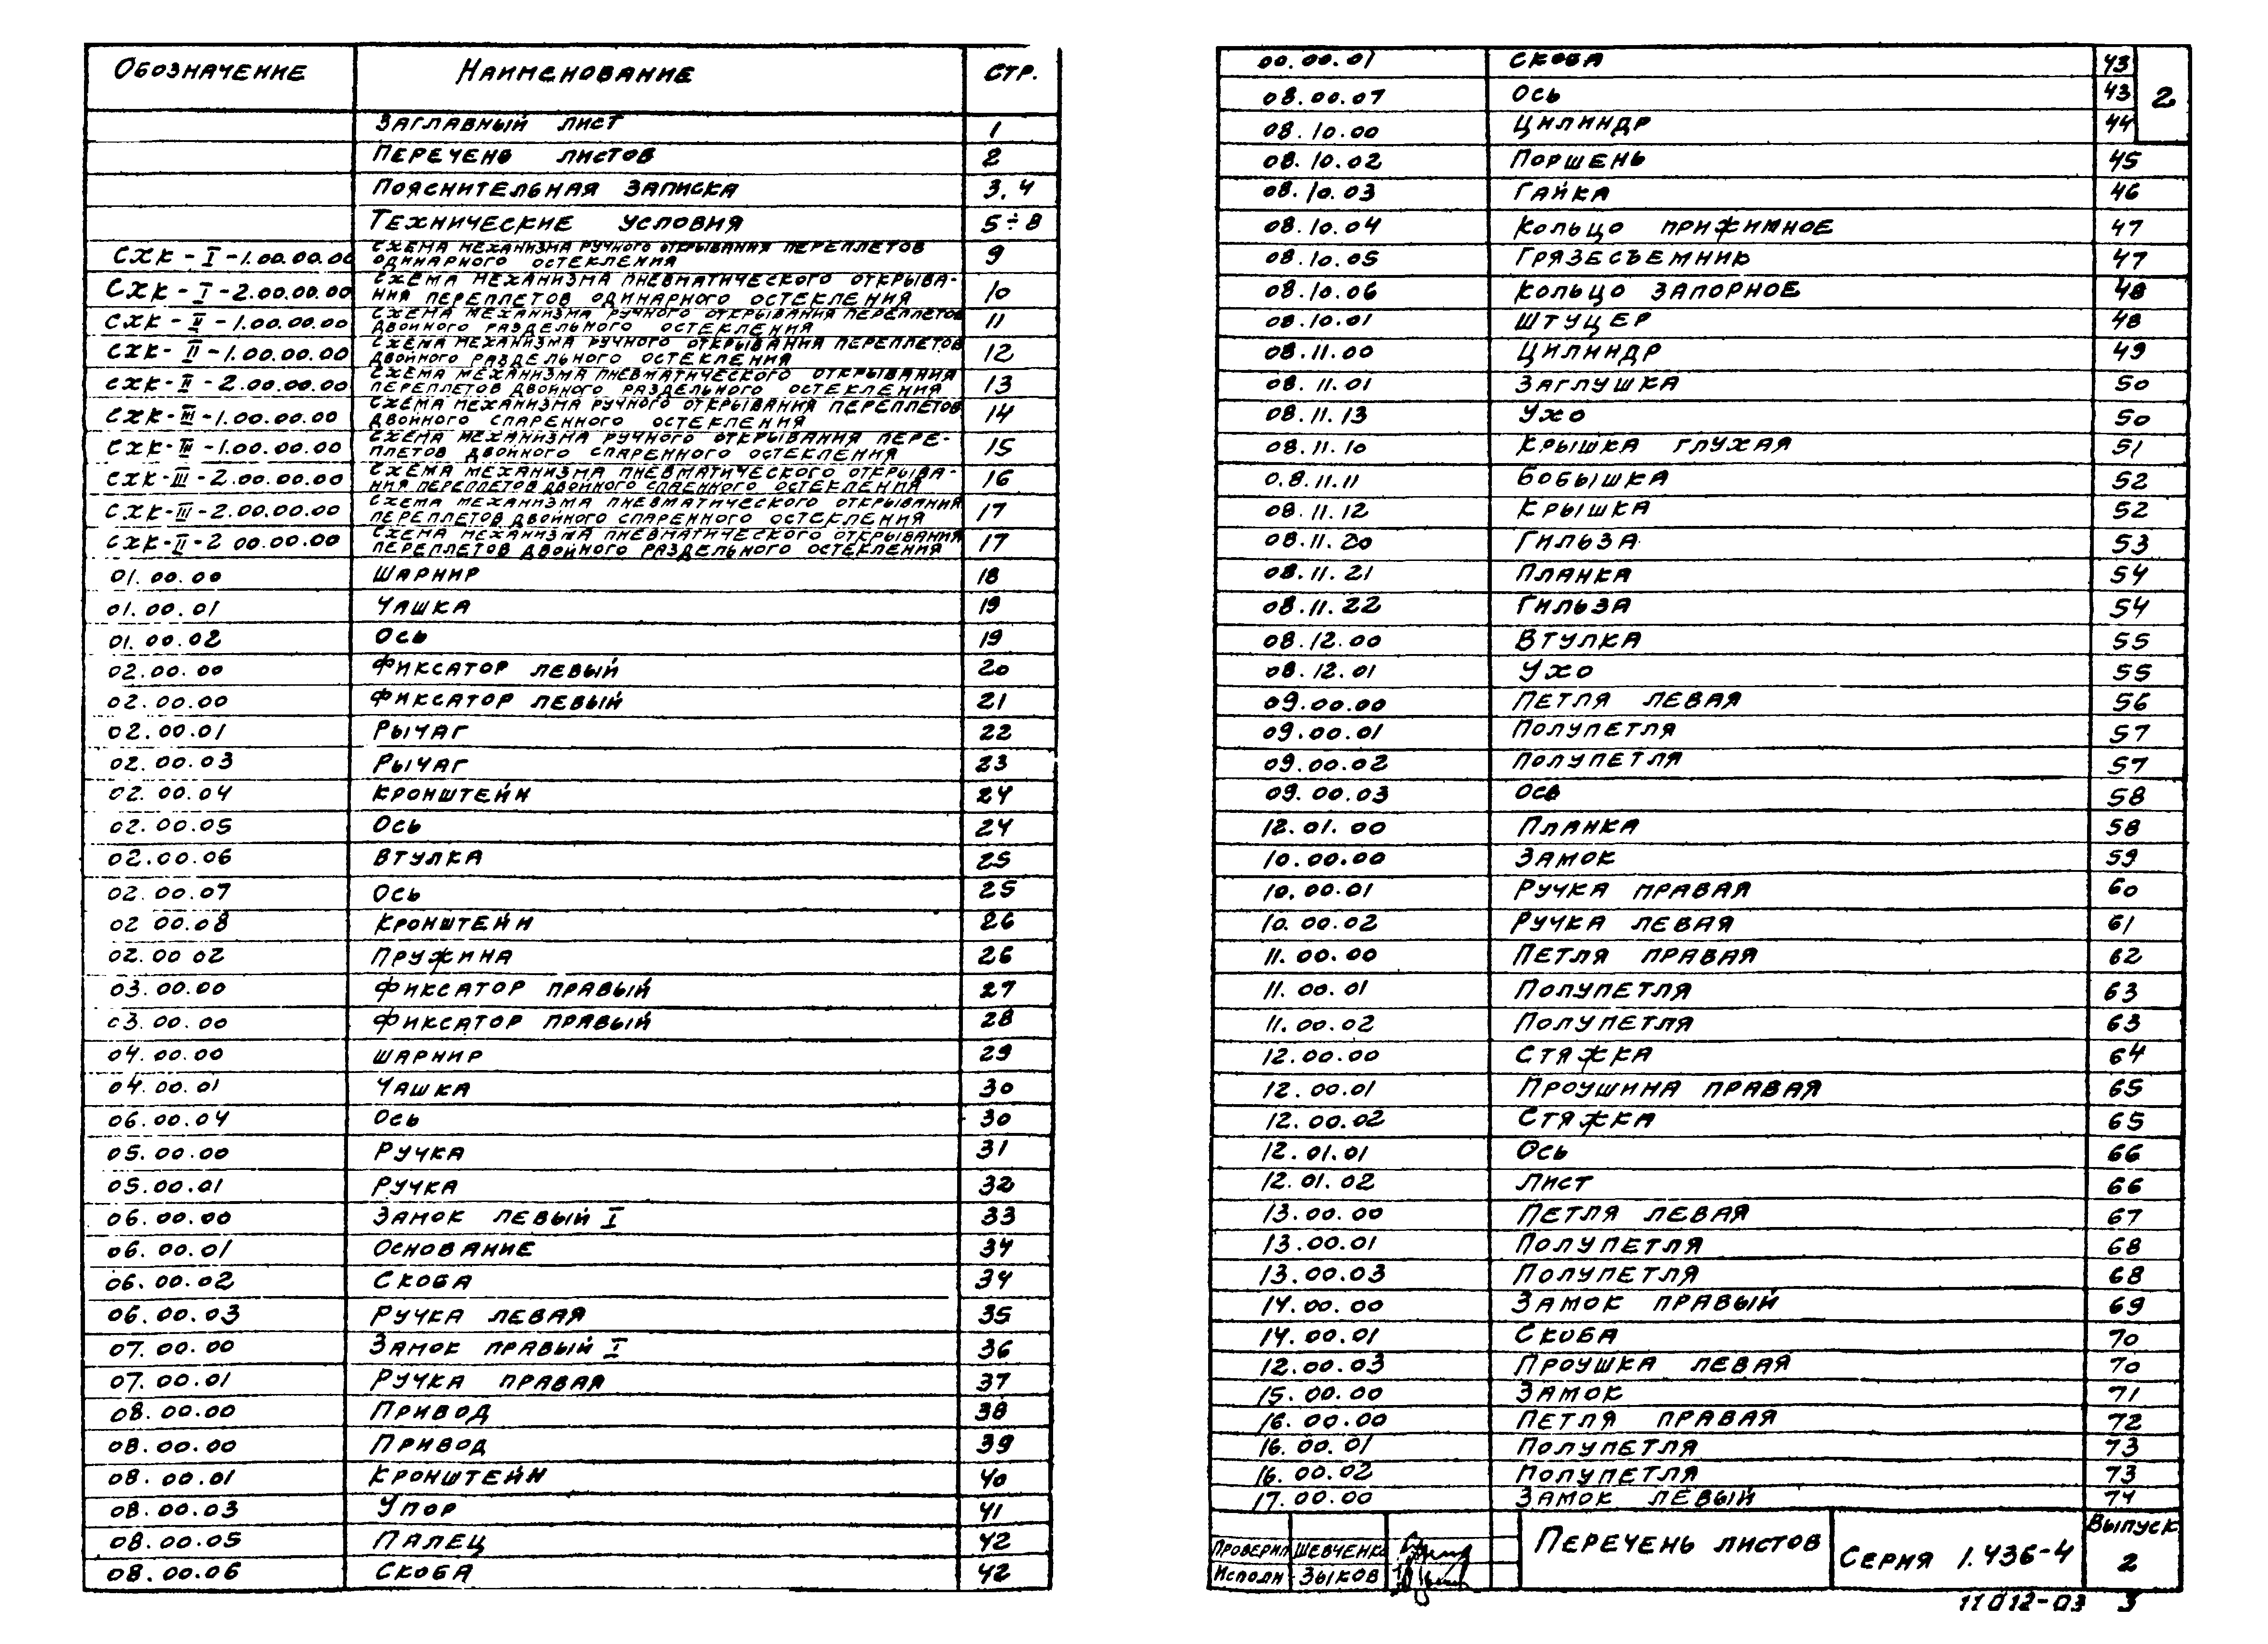 Обозначение Наименование стр.
Заглавный лист 1
Перечень листов 2
Пояснительная записка 3,4
Технические условия 5÷8
СХК-I-1.00.00.00 Схема механизма ручного открывания переплетов 9
одинарного остекления
СХК-I-2.00.00.00 Схема механизма пневматического открыва- 10
ния переплетов одинарного остекления
СХК-II-1.00.00.00 Схема механизма ручного открывания переплетов 11
двойного раздельного остекления
СХК-II-1.00.00.00 Схема механизма ручного открывания переплетов 12
двойного раздельного остекления
СХК-II-2.00.00.00 Схема механизма пневматического открывания 13
переплетов двойного раздельного остекления
СХК-III-1.00.00.00 Схема механизма ручного открывания переплетов 14
двойного спаренного остекления
СХК-III-1.00.00.00 Схема механизма ручного открывания пере- 15
плетов двойного спаренного остекления
СХК-III-2.00.00.00 Схема механизма пневматического открыва- 16
ния переплетов двойного спаенного остекления
СХК-III-2.00.00.00 Схема механизма пневматического открывания 17
переплетов двойного спаренного остекления
СХК-II-2 00.00.00 Схема механизма пневматического открывания 17
переплетов двойного раздельного остекления
01.00.00 Шарнир 18
01.00.01 Чашка 19
01.00.02 Ось 19
02.00.00 Фиксатор левый 20
02.00.00 Фиксатор левый 21
02.00.01 Рычаг 22
02.00.03 Рычаг 23
02.00.04 Кронштейн 24
02.00.05 Ось 24
02.00.06 Втулка 25
02.00.07 Ось 25
02 00.08 Кронштейн 26
02.00 02 Пружина 26
03.00.00 Фиксатор правый 27
03.00.00 Фиксатор правый 28
04.00.00 Шарнир 29
04.00.01 Чашка 30
06.00.04 Ось 30
05.00.00 Ручка 31
05.00.01 Ручка 32
06.00.00 Замок левый I 33
06.00.01 Основание 34
06.00.02 Скоба 34
06.00.03 Ручка левая 35
07.00.00 Замок правый I 36
07.00.01 Ручка правая 37
08.00.00 Привод 38
08.00.00 Привод 39
08.00.01 Кронштейн 40
08.00.03 Упор 41
08.00.05 Палец 42
08.00.06 Скоба 42
00.00.01 Скоба 43
08.00.07 Ось 43
2
08.10.00 Цилиндр 44
08.10.02 Поршень 45
08.10.03 Гайка 46
08.10.04 Кольцо прижимное 47
08.10.05 Грязесъемник 47
08.10.06 Кольцо запорное 48
08.10.01 Штуцер 48
08.11.00 Цилиндр 49
08.11.01 Заглушка 50
08.11.13 Ухо 50
08.11.10 Крышка глухая 51
0.8.11.11 Бобышка 52
08.11.12 Крышка 52
08.11.20 Гильза 53
08.11.21 Планка 54
08.11.22 Гильза 54
08.12.00 Втулка 55
08.12.01 Ухо 55
09.00.00 Петля левая 56
09.00.01 Полупетля 57
09.00.02 Полупетля 57
09.00.03 Ось 58
12.01.00 Планка 58
10.00.00 Замок 59
10.00.01 Ручка правая 60
10.00.02 Ручка левая 61
11.00.00 Петля правая 62
11.00.01 Полупетля 63
11.00.02 Полупетля 63
12.00.00 Стяжка 64
12.00.01 Проушина правая 65
12.00.02 Стяжка 65
12.01.01 Ось 66
12.01.02 Лист 66
13.00.00 Петля левая 67
13.00.01 Полупетля 68
13.00.03 Полупетля 68
14.00.00 Замок правый 69
14.00.01 Скоба 70
12.00.03 Проушка левая 70
15.00.00 Замок 71
16.00.00 Петля правая 72
16.00.01 Полупетля 73
16.00.02 Полупетля 73
17.00.00 Замок левый 74
Проверил Шевченко
Исполн Зыков
Перечень листов
Серия 1.436-4
Выпуск
2
11012-03 3